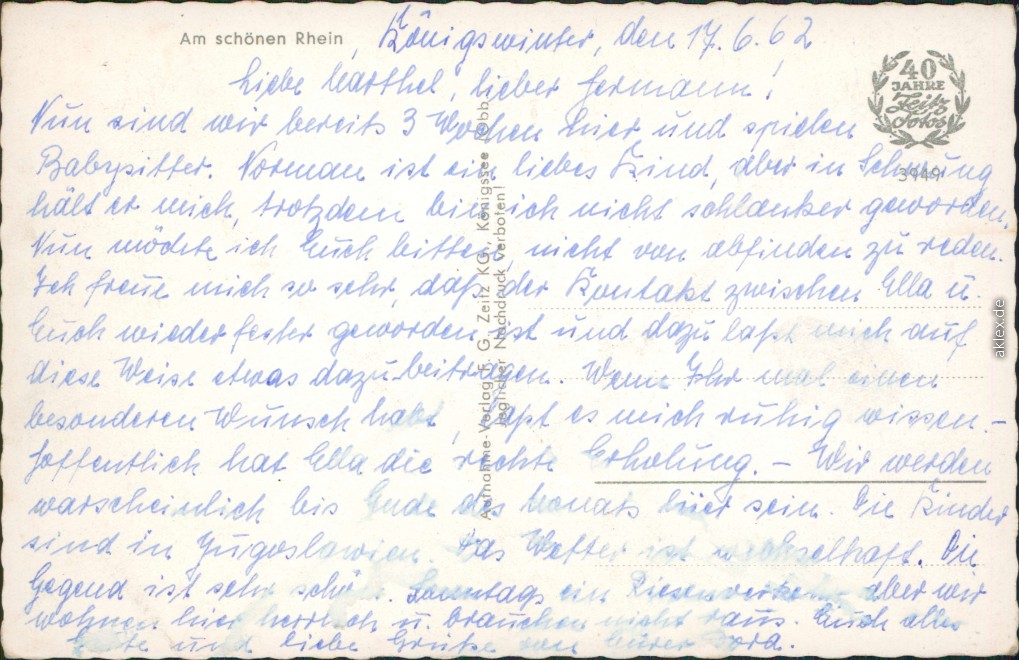 Am schönen Rhein
Königswinter, den 17.6.62
Liebe Marthel, lieber Hermann!
Nun sind wir bereits 3 Wochen hier und spielen
Babysitter. Norman ist ein liebes Kind, aber in Schwung
hält er mich, trotzdem bin ich nicht schlanker geworden.
Nun möchte ich Euch bitten nicht von abfinden zu reden.
Ich freue mich so sehr, daß der Kontakt zwischen Ella u.
Euch wieder fester geworden ist und dazu laßt mich auf
diese Weise etwas dazu beitragen. Wenn Ihr mal einen
besonderen Wunsch habt, laßt es mich ruhig wissen. –
Hoffentlich hat Ella die rechte Erholung. – Wir werden
warscheinlich bis Ende des Monats hier sein. Die Kinder
sind in Jugoslawien. Das Wetter ist wechselhaft. Die
Gegend ist sehr schön. Sonntags ein Riesenverkehr aber wir
wohnen hier herrlich u. brauchen nicht raus. Euch alles
Gute und liebe Grüße von Eurer Dora.
40
JAHRE
Zeitz
Fotos
3949
Aufnahme-Verlag F. G. Zeitz KG., Königssee /Obb.
Jeglicher Nachdruck verboten!
aklex.de